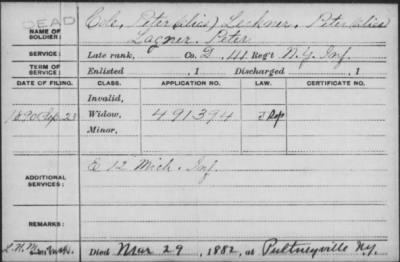 DEAD
NAME OF SOLDIER: Cole, Peter (alias) Lechner, Peter (alias)
Lagner, Peter
SERVICE: Late rank, Co. D, 41 Reg't N.Y. Inf.
TERM OF SERVICE: Enlisted , 1 Discharged , 1
DATE OF FILING. CLASS. APPLICATION NO. LAW. CERTIFICATE NO.
Invalid,
1890 Sep. 23 Widow, 491394 J
Minor,
ADDITIONAL SERVICES: E 12 Mich. Inf.
REMARKS:
Died Mar 29, 1882, at Pultneyville N.Y.